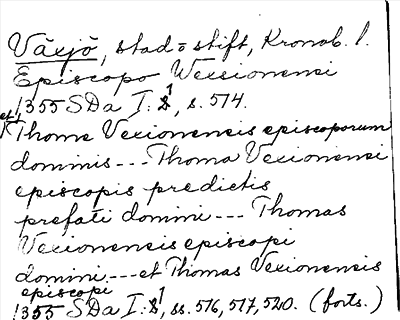 Växjö, stad o stift, Kronob. l.
Episcopo Wexsionensi
1355 SDa I: 1, s. 574.
et Thome Vexionensis episcoporum
dominis --- Thoma Vexionensi
episcopis predictis
prefati domini --- Thomas
Vexionensis episcopi
domini --- et Thomas Vexionensis
episcopi
1355 SDa I: 1, ss. 576, 577, 520. (forts.)